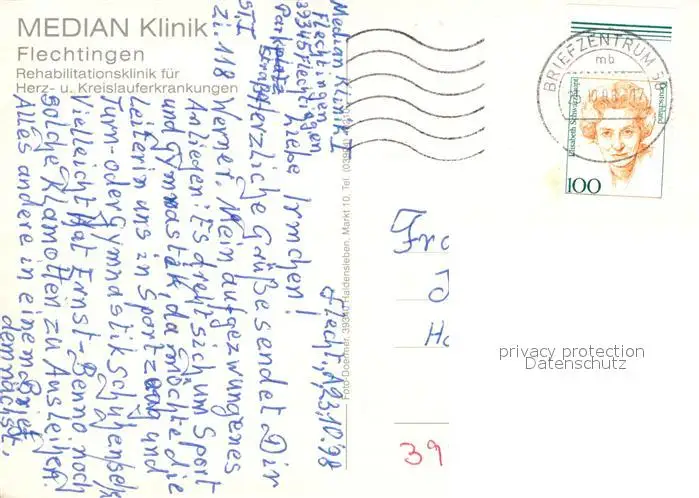 MEDIAN Klinik
Flechtingen
Rehabilitationsklinik für
Herz- u. Kreislauferkrankungen
Median Klinik I
Flechtingen
39345 Flechtingen
Parkstraße
ST. I
Zi. 118
Flecht., 23.10.98
Liebe Irmchen!
Herzliche Grüße sendet Dir
Werner. Mein aufgezwungenes
Anliegen: Es dreht sich um Sport
und Gymnastik, da möchte die
Leiterin uns in Sportzeug und
Turn- oder Gymnastikschuhen sehn
Vielleicht hat Ernst-Benno noch
solche Klamotten zu Ausleihen.
Alles andere in einem Brief
demnächst.
Foto-Doermer, 39340 Haldensleben, Markt 10, Tel.
BRIEFZENTRUM 39
mb
Elisabeth Schwarzhaupt
Deutschland
100
Fra
J
Ha
39
privacy protection
Datenschutz